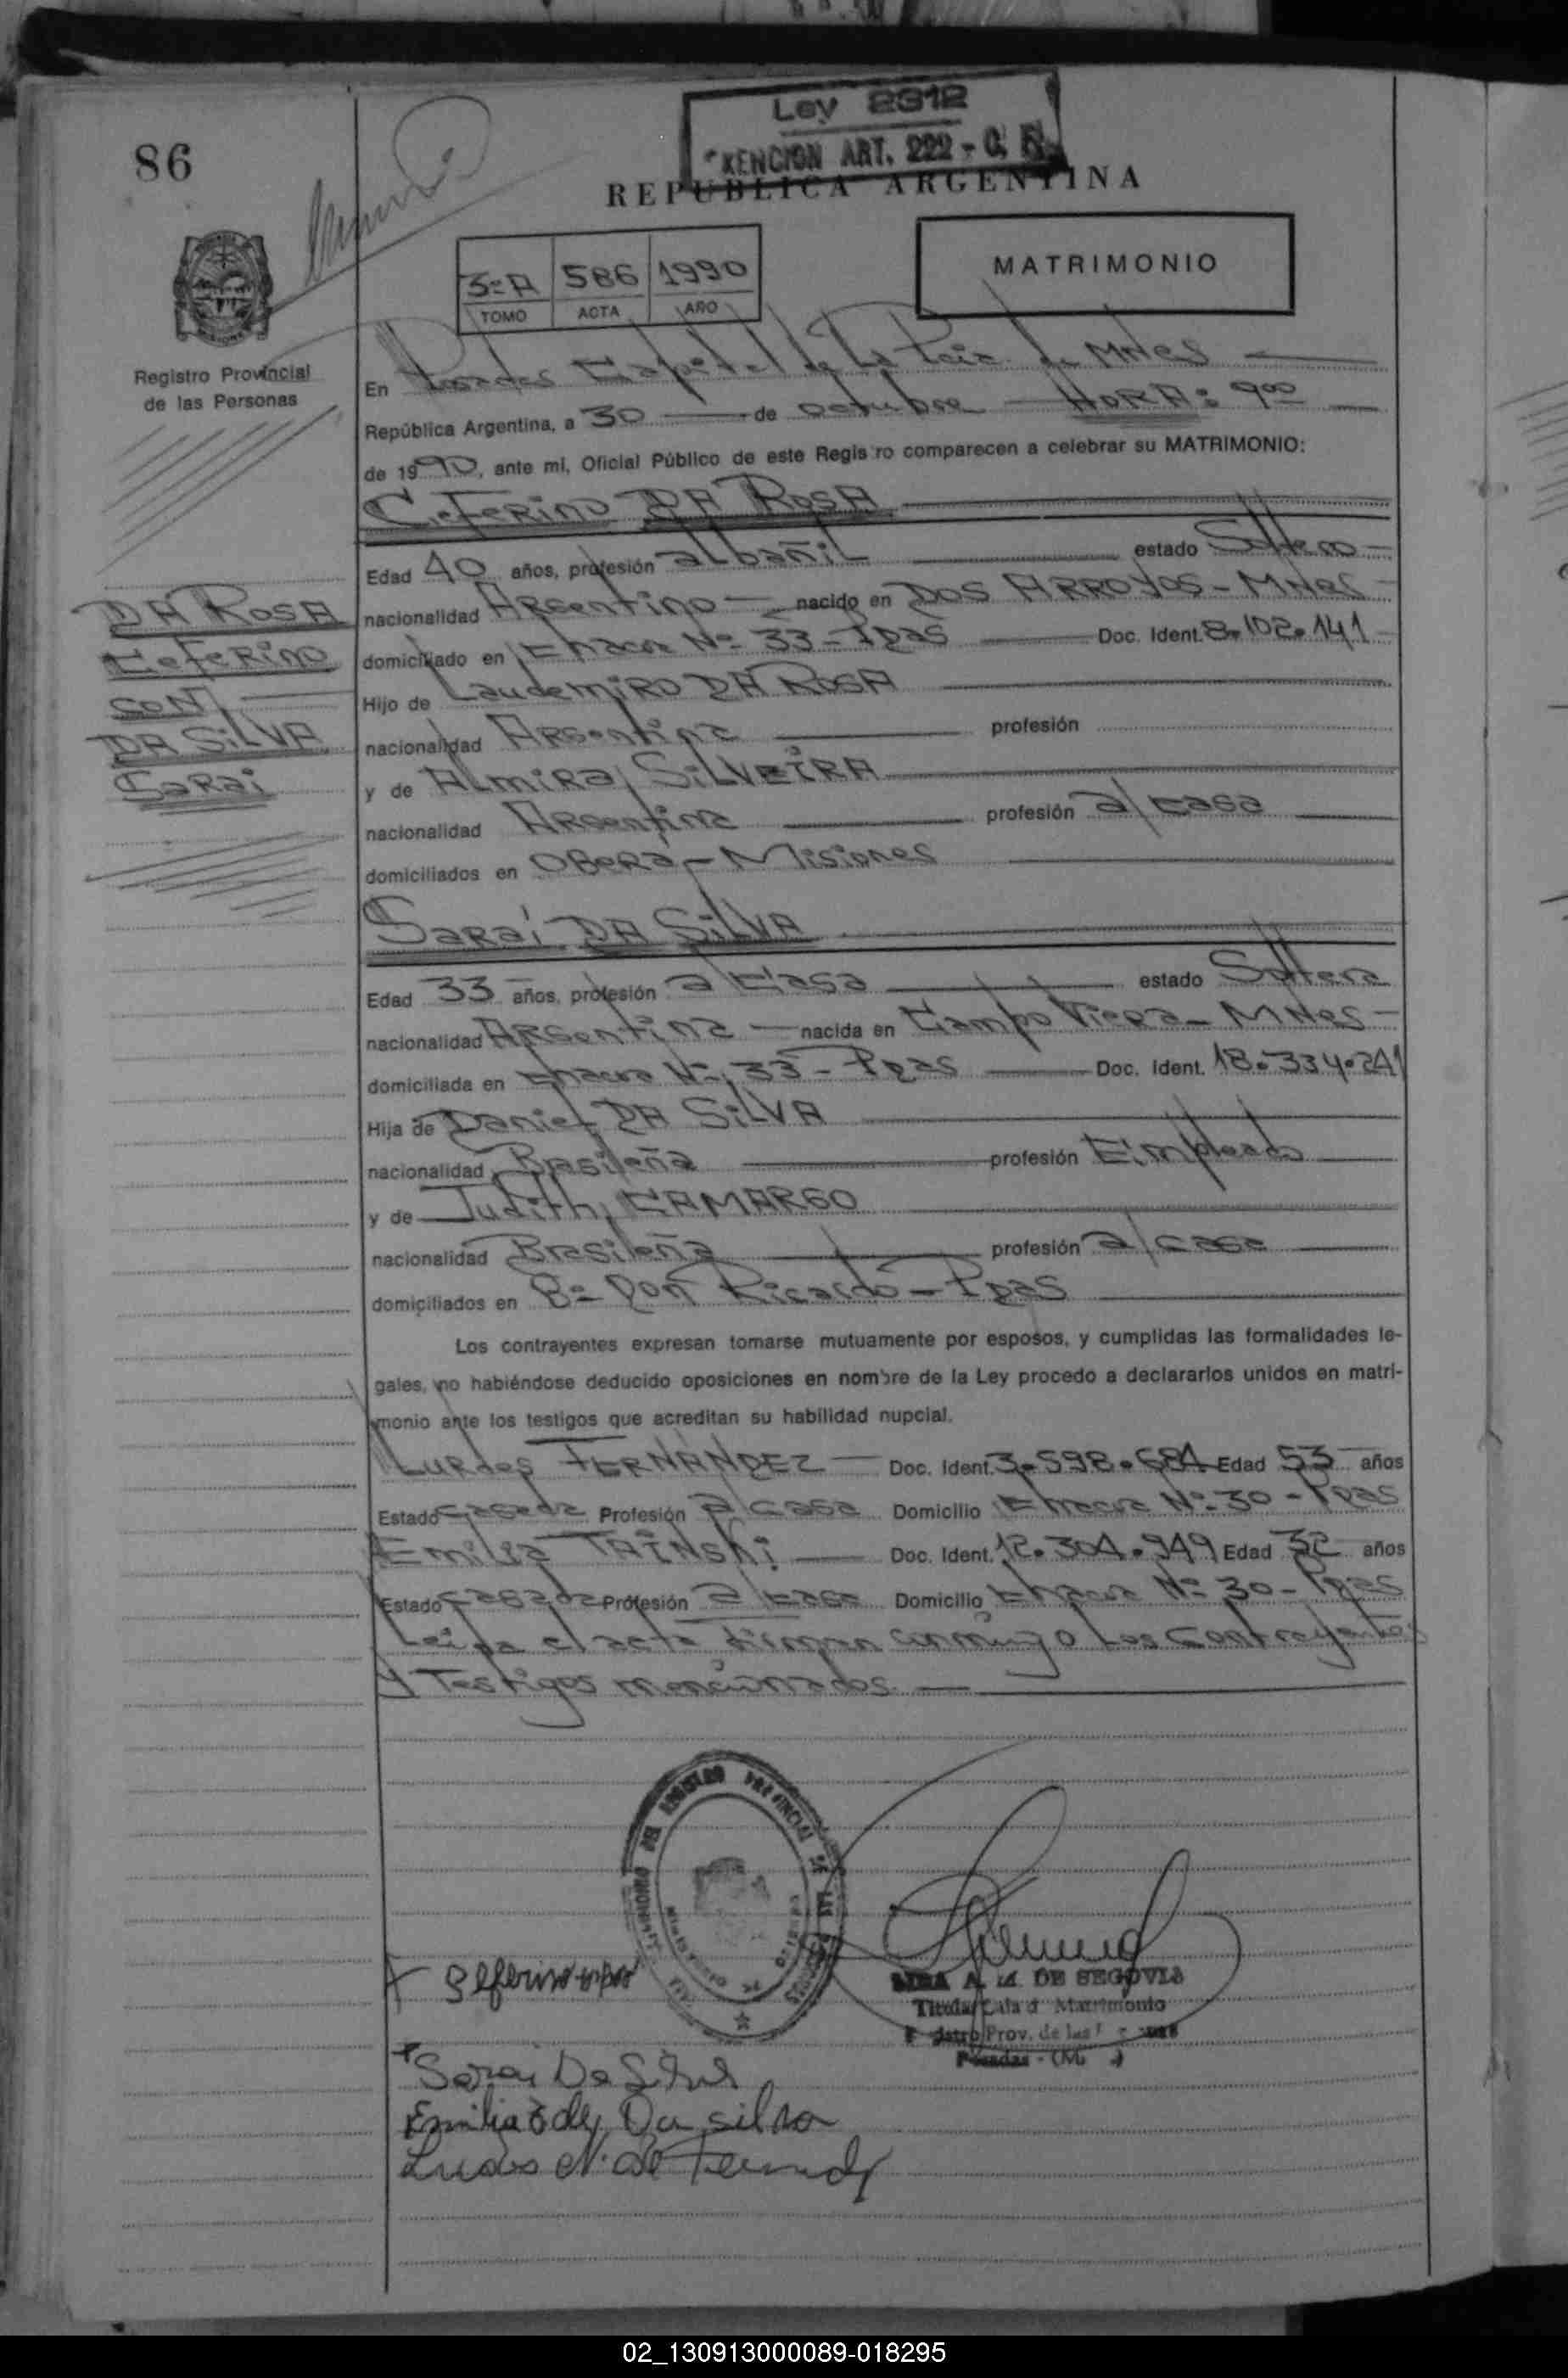 86
Ley 2312
EXENCION ART. 222 - C. F.
REPUBLICA ARGENTINA
3=A 586 1990
TOMO ACTA AÑO
MATRIMONIO
Registro Provincial
de las Personas
En Posadas Capital de la Pcia. de Mnes
República Argentina, a 30 de octubre HORA: 9 00
de 1990, ante mi, Oficial Público de este Registro comparecen a celebrar su MATRIMONIO:
Ceferino DA ROSA
Edad 40 años, profesión albañil estado Soltero
nacionalidad Argentino nacido en DOS ARROYOS - Mnes
domiciliado en Chacra Nº 33 - Pdas Doc. Ident. 8.102.141
Hijo de Laudemiro DA ROSA
nacionalidad Argentina profesión
y de Almira SILVEIRA
nacionalidad Argentina profesión a/casa
domiciliados en Oberá - Misiones
DA ROSA
Ceferino
CON
DA SILVA
Sarai
Sarai DA SILVA
Edad 33 años, profesión a casa estado Soltera
nacionalidad Argentina nacida en Campo Viera - Mnes
domiciliada en Chacra Nº 33 - Pdas Doc. Ident. 18.334.241
Hija de Daniel DA SILVA
nacionalidad Brasileña profesión Empleado
y de Judith CAMARGO
nacionalidad Brasileña profesión a/casa
domiciliados en Bº Don Ricardo - Pdas
Los contrayentes expresan tomarse mutuamente por esposos, y cumplidas las formalidades le-
gales, no habiéndose deducido oposiciones en nombre de la Ley procedo a declararlos unidos en matri-
monio ante los testigos que acreditan su habilidad nupcial.
Lurdes FERNANDEZ Doc. Ident. 3.598.684 Edad 53 años
Estado casada Profesión a/casa Domicilio Chacra Nº 30 - Pdas
Emilia TAINSKI Doc. Ident. 12.304.949 Edad 32 años
Estado casada Profesión a/casa Domicilio Chacra Nº 30 - Pdas
Leida el acta firman conmigo los contrayentes
y Testigos mencionados.
DEL REGISTRO PROVINCIAL DE LAS
A. M. DE SEGOVIA
Titular Sala d Matrimonio
Prov. de las
Posadas - (M )
Sarai Da Silva
Emilia de Da silva
N. de
02_130913000089-018295